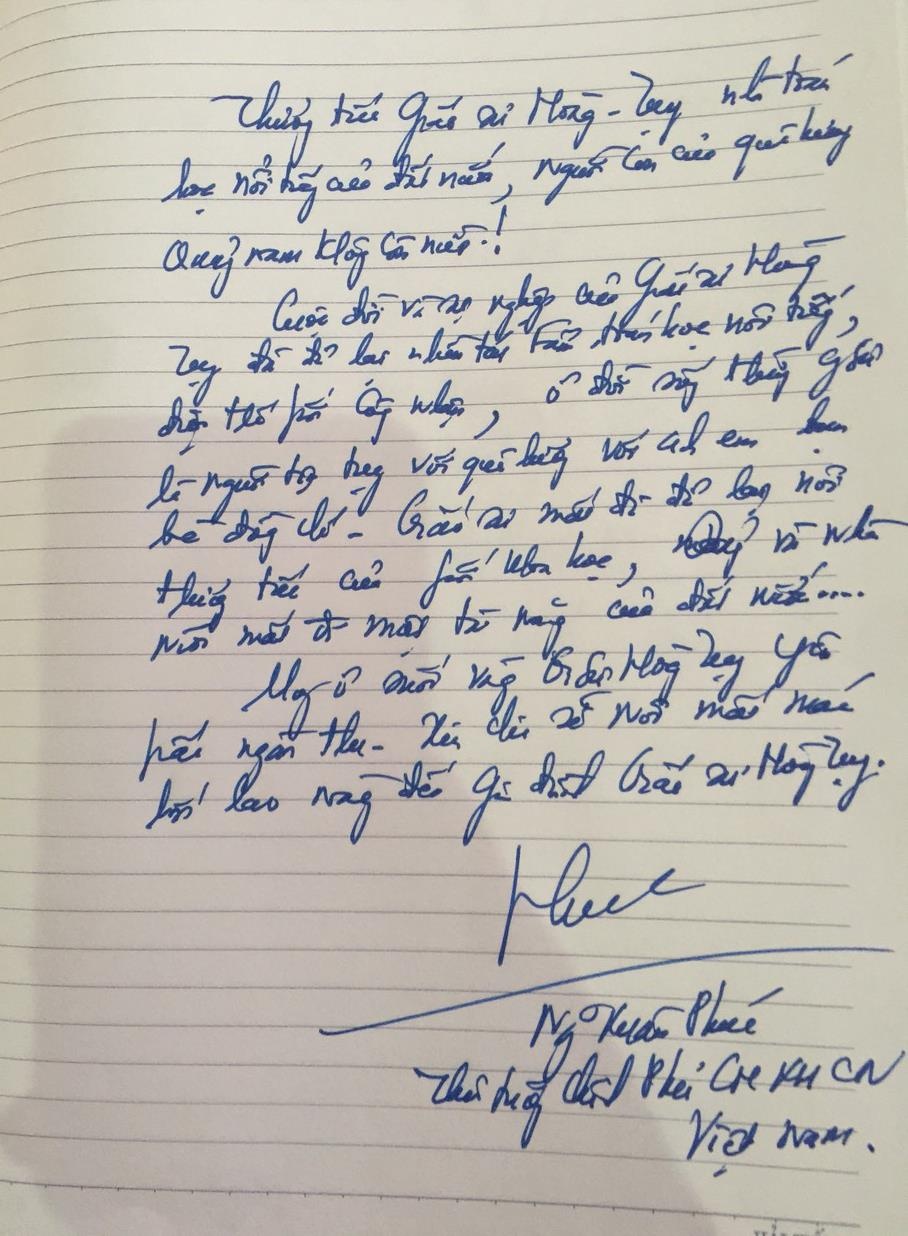 Thương tiếc Giáo sư Hoàng Tụy nhà toán
học nổi tiếng của đất nước, người con của quê hương
Quảng nam không còn nữa.!
Cuộc đời và sự nghiệp của Giáo sư Hoàng
Tụy đã để lại nhiều toán học nổi tiếng,
được thế giới công nhận, ở đời sống thường
là người với quê hương với anh em bạn
bè đồng chí - Giáo sư mất đi để lại nỗi
thương tiếc của giới khoa học, và nhân
Nỗi mất đi một tài năng của đất nước....
Giáo sư Hoàng Tụy yên
ngàn thu - Xin chia sẻ nỗi mất mát
lớn lao này đến Gia đình Giáo sư Hoàng Tụy.
Phuc
Ng Xuân Phúc
Thủ tướng Chính Phủ CHXHCN
Việt Nam.